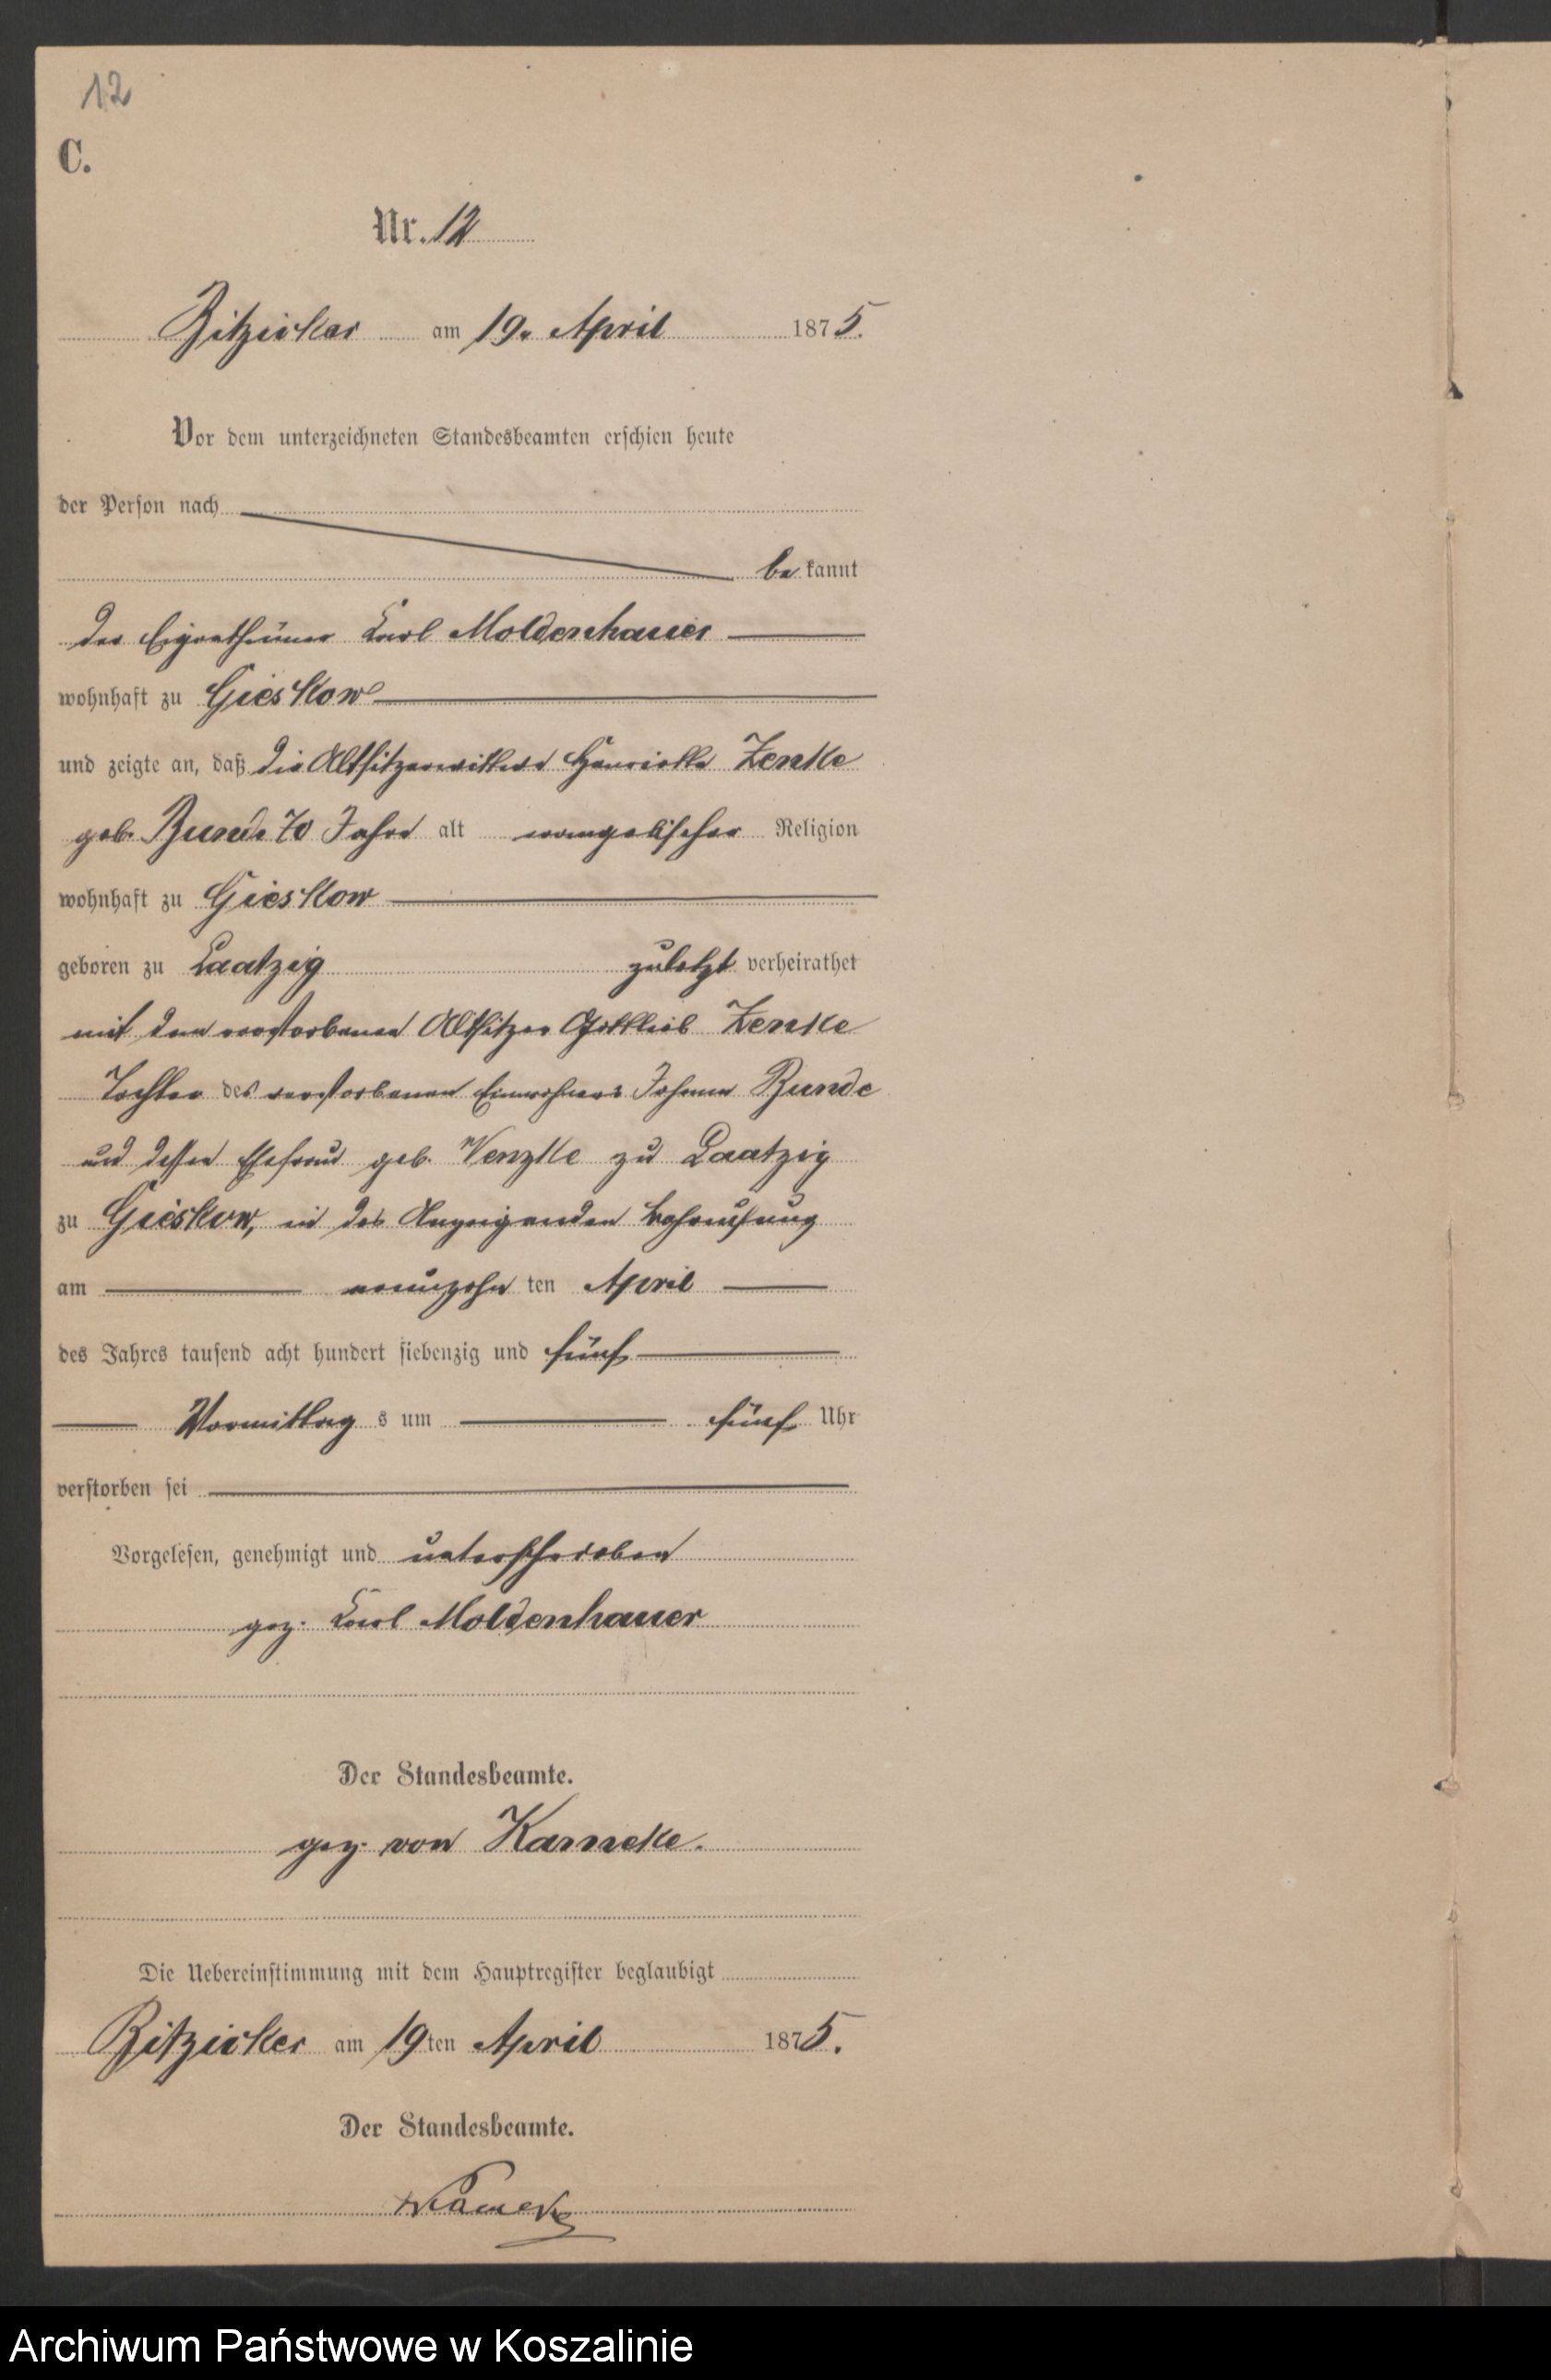 12
C.
Nr. 12
Bitzicker am 19. April 1875.
Vor dem unterzeichneten Standesbeamten erschien heute
der Person nach
be kannt
der Eigenthümer Carl Moldenhauer
wohnhaft zu Gieskow
und zeigte an, daß die Altsitzerwittwe Henriette Zenke
geb. Bunde 70 Jahre alt evangelischer Religion
wohnhaft zu Gieskow
geboren zu Laatzig zuletzt verheirathet
mit dem verstorbenen Altsitzer Gottlieb Zenke
Tochter des verstorbenen Einwohners Johann Bunde
und dessen Ehefrau geb. Venzke zu Laatzig
zu Gieskow, in des Anzeigenden Behausung
am neunzehn ten April
des Jahres tausend acht hundert siebenzig und fünf
Vormittag s um fünf Uhr
verstorben sei
Vorgelesen, genehmigt und unterschrieben
gez. Carl Moldenhauer
Der Standesbeamte.
gez. von Kameke.
Die Uebereinstimmung mit dem Hauptregister beglaubigt
Bitzicker am 19ten April 1875.
Der Standesbeamte.
vKameke
Archiwum Państwowe w Koszalinie